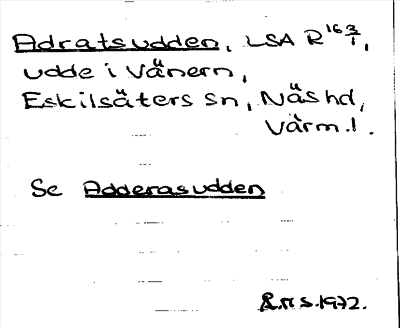 Adratsudden, LSA R 16 3/1,
udde i Vänern,
Eskilsäters sn, Näs hd,
Värm. l.
Se Adderasudden
R.N.S. 1972.